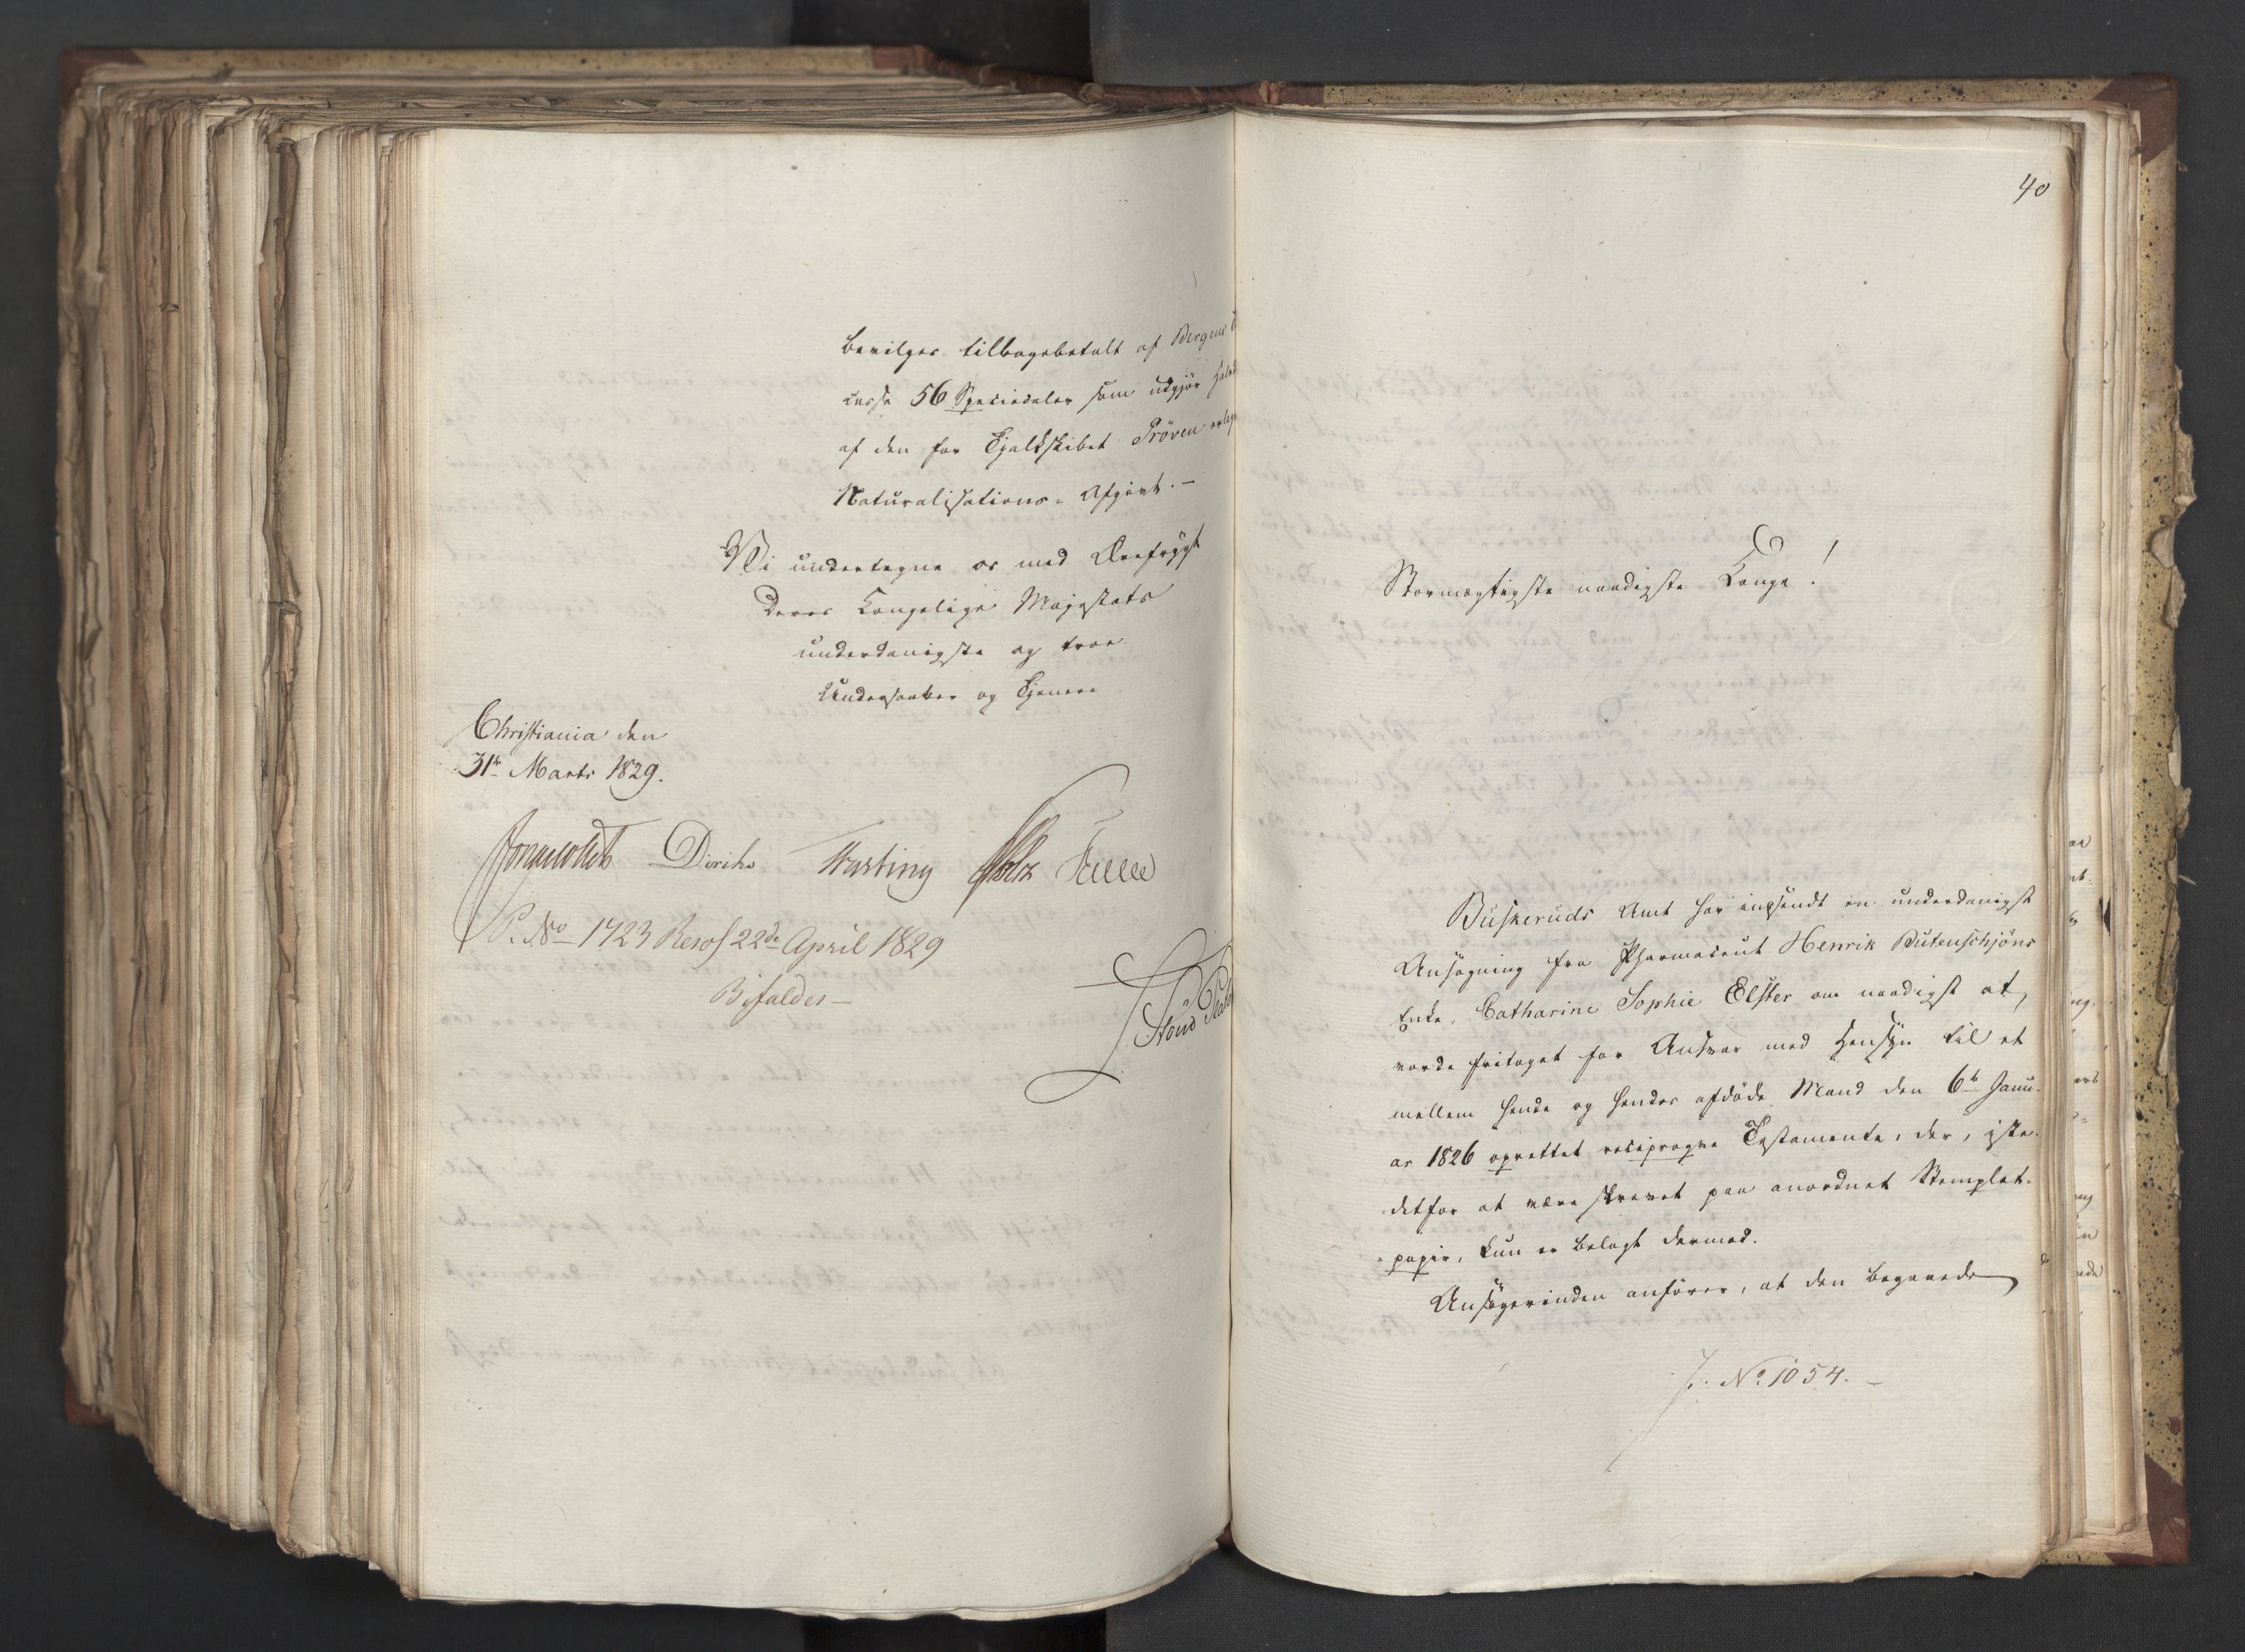 bevilges tilbagebetalt af Bergens
casse 56 Speciedaler som udgjør halv
af den for Tjalkskibet Prøven erlag
Naturalisations- Afgivt. -
Vi undertegne os med Ærefrygt
Deres Kongelige Majestæts
underdanigste og troe
Undersaatter og Tjenere
Christiania den
31te Marts 1829.
Diriks Fasting Holst
P. No 1723 Resol 22de April 1829
Bifaldes -
40
Stormægtigste naadigste Konge!
Buskeruds Amt har indsendt en underdanigst
Ansøgning fra Pharmaceut Henrik Butenschjöns
Enke, Catharine Sophie Elster om naadigst at,
vorde fritaget for Ansvar med Hensyn til et
mellem hende og hendes afdøde Mand den 6te Janu-
ar 1826 oprettet reciproqve Testamente, der, iste-
detfor at være skrevet paa anordnet Stemplet-
papir, kun er belagt dermed.
Ansøgerinden anfører, at den begaaede
J. No 1054. -